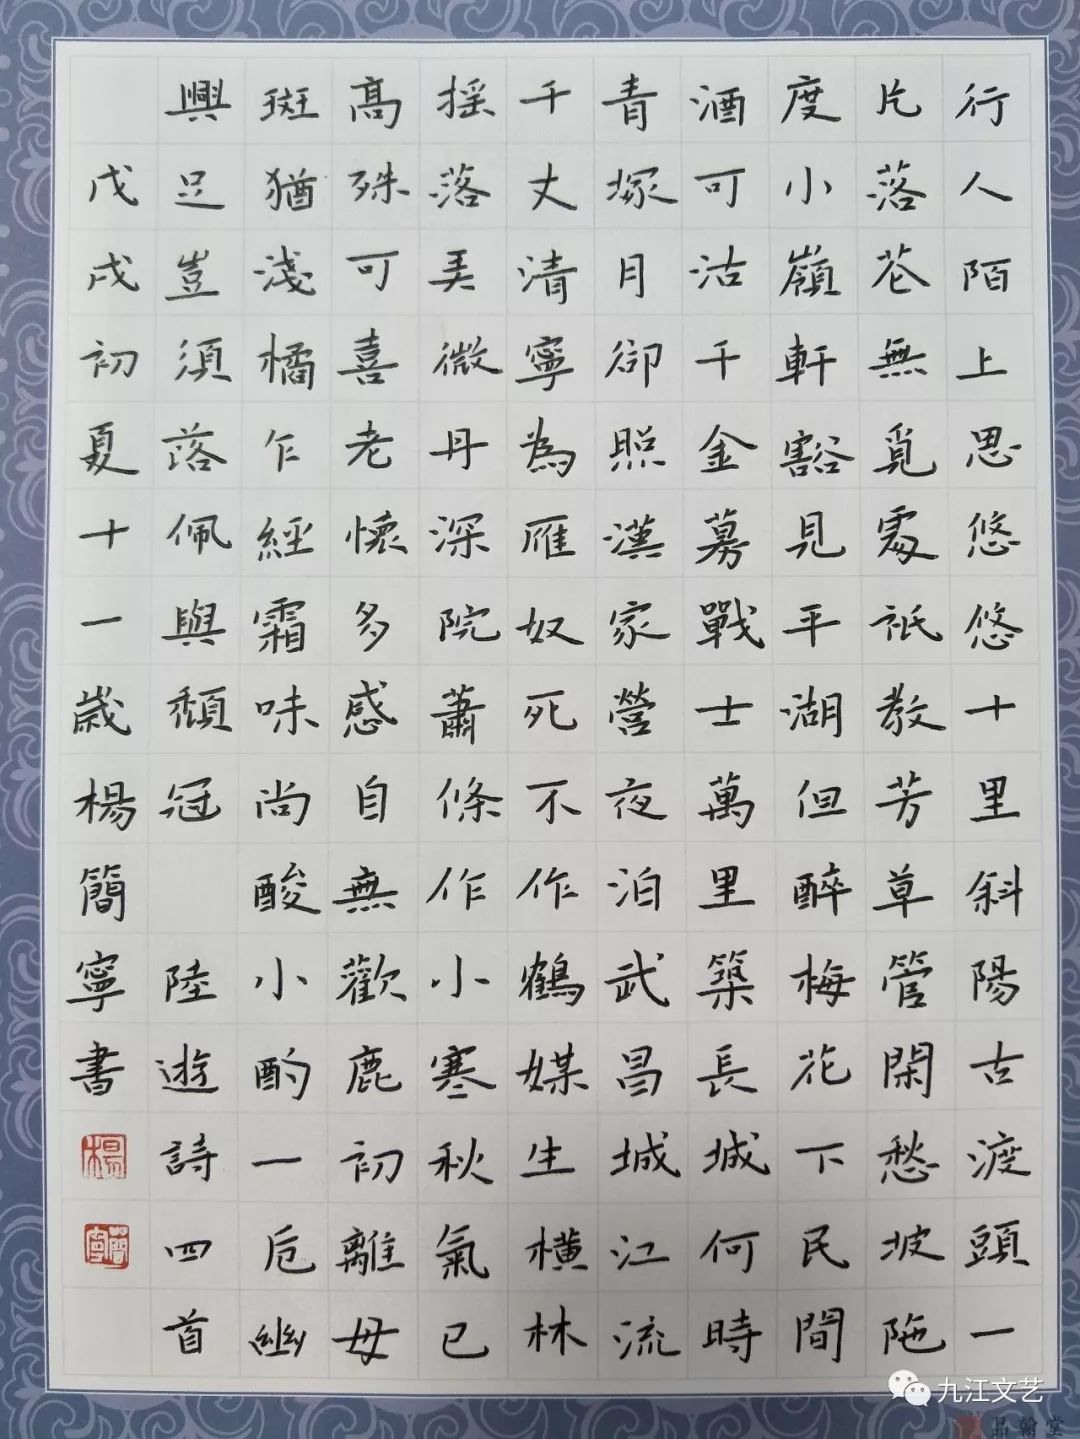 行人陌上思悠悠十里斜陽古渡頭一
片落花無覓處衹教芳草管閑愁坡陁
度小嶺軒豁見平湖但醉梅花下民間
酒可沽千金募戰士萬里築長城何時
青塚月卻照漢家營夜泊武昌城江流
千丈清寧為雁奴死不作鶴媒生橫林
搖落弄微丹深院蕭條作小寒秋氣已
高殊可喜老懷多感自無歡鹿初離母
斑猶淺橘乍經霜味尚酸小酌一卮幽
興足豈須落佩與頹冠 陸遊詩四首
戊戌初夏十一歲楊簡寧書
楊
簡寧
九江文艺
品翰堂